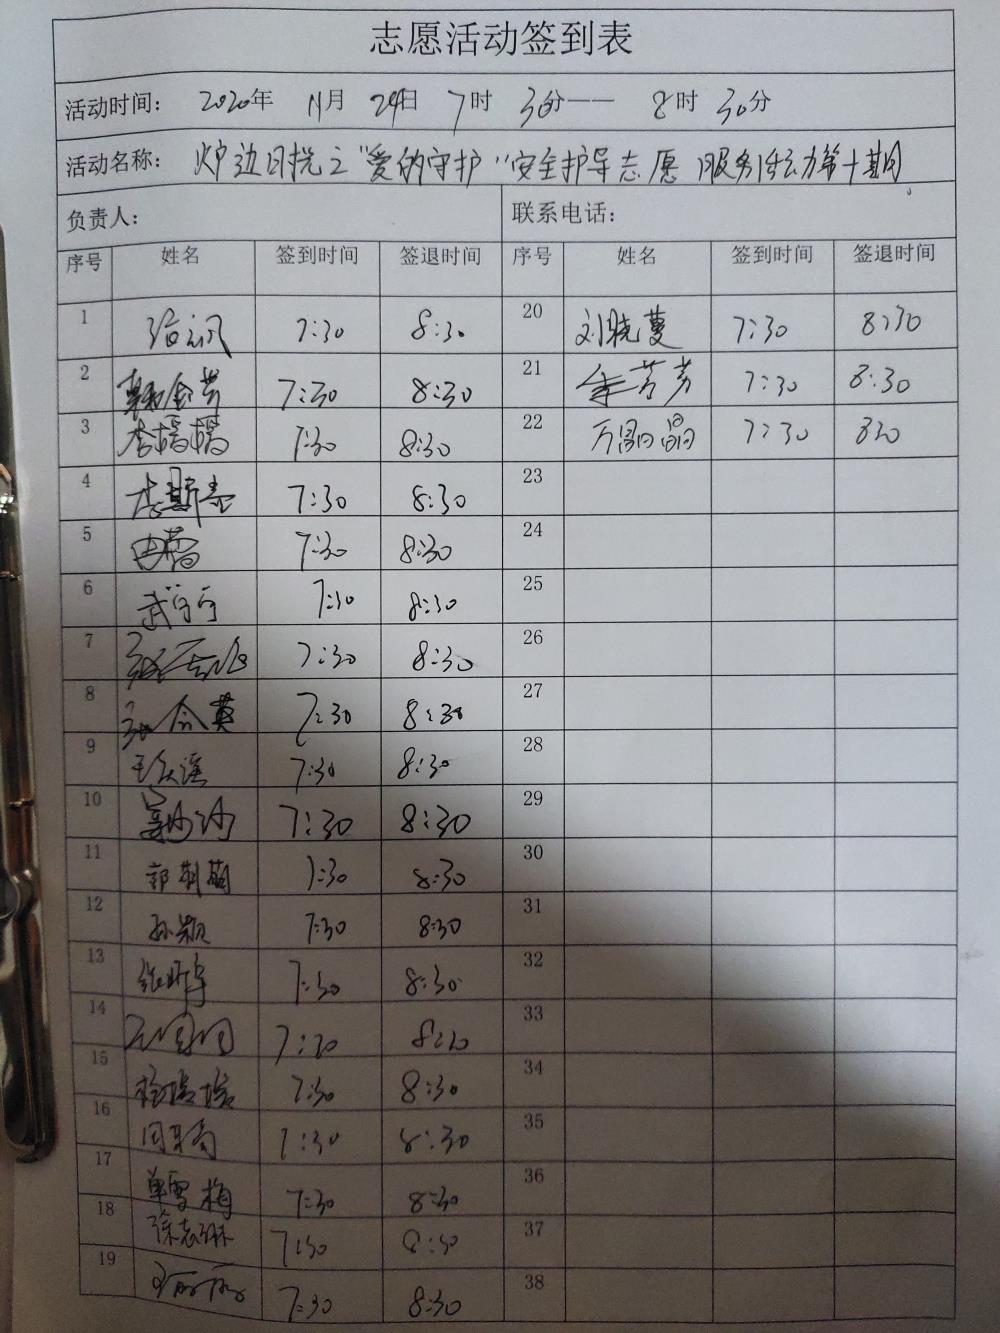 志愿活动签到表
活动时间： 2020年 11月 24日 7时 30分—— 8时 30分
活动名称： 炉边日悦之"爱的守护"安全护导志愿服务活动第十期。
负责人： 联系电话：
序号 姓名 签到时间 签退时间 序号 姓名 签到时间 签退时间
1 7:30 8:30 20 刘晓蔓 7:30 8:30
2 韩金芳 7:30 8:30 21 芳芳 7:30 8:30
3 李楠楠 7:30 8:30 22 万晶晶 7:30 830
4 李斯 7:30 8:30 23
5 曲 7:30 8:30 24
6 武可可 7:30 8:30 25
7 7:30 8:30 26
8 英 7:30 8:30 27
9 王 7:30 8:30 28
10 沙沙 7:30 8:30 29
11 郭莉萌 7:30 8:30 30
12 孙颖 7:30 8:30 31
13 张昕宇 7:30 8:30 32
14 7:30 8:30 33
15 7:30 8:30 34
16 周 7:30 8:30 35
17 单雪梅 7:30 8:30 36
18 徐志琳 7:30 8:30 37
19 7:30 8:30 38